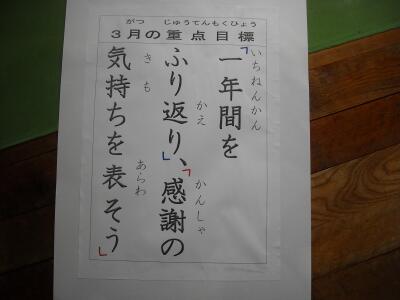 がつ じゅうてんもくひょう
3月の重点目標
いちねんかん
「一年間を
かえ かんしゃ
ふり返り」、「感謝の
きも あらわ
気持ちを表そう」